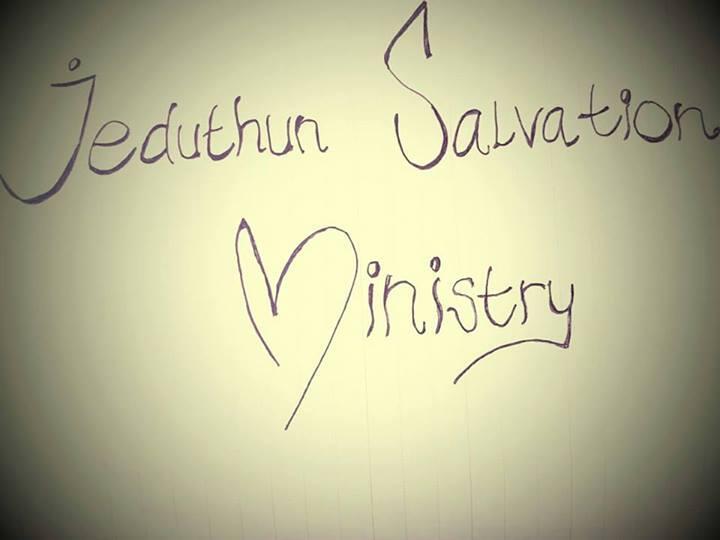 Jeduthun Salvation
Ministry